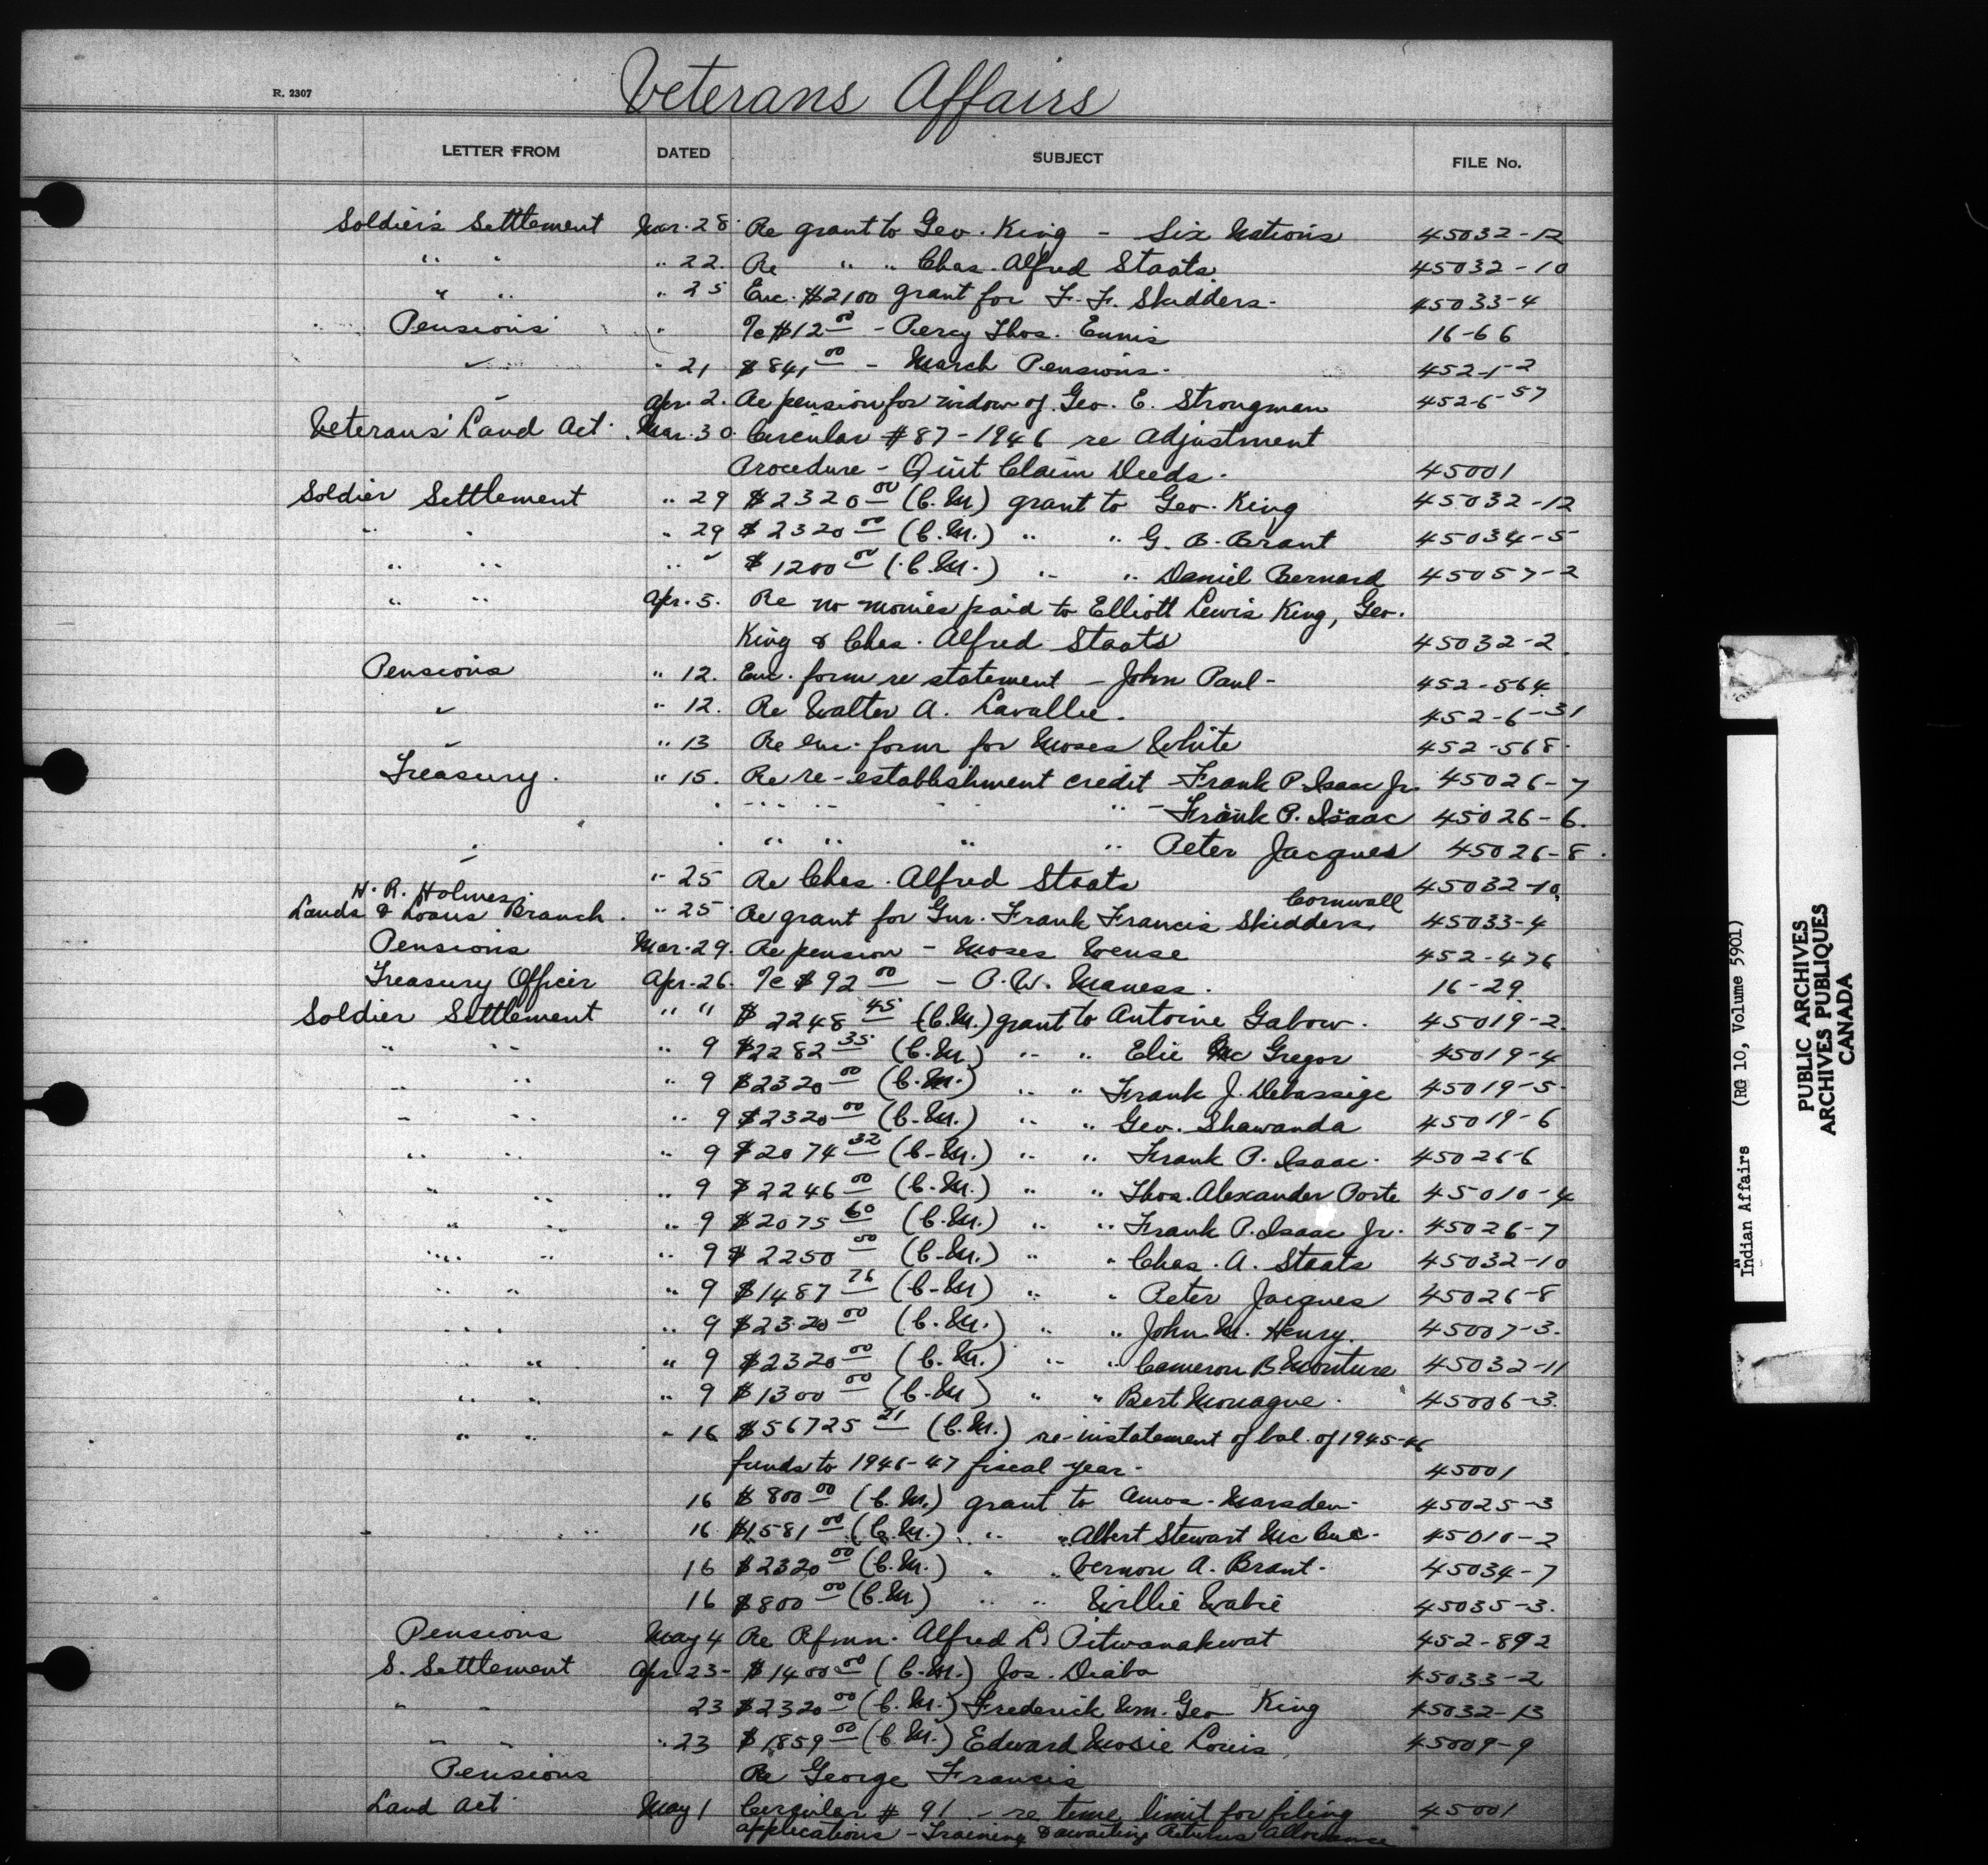 R. 2307
Veterans Affairs
LETTER FROM DATED SUBJECT FILE No.
Soldier's Settlement Mar. 28 Re grant to Geo. King - Six Nations 45032-12
" " " 22. Re " " Chas. Alfred Staats 45032-10
" " " 25 Enc. $2100 grant for F. F. Skidders. 45033-4
Pensions " ℅ $12 00 - Percy Thos. Ennis 16-66
" " 21 $841 00 - March Pensions. 452-1-2
" Apr. 2. Re pension for widow of Geo. E. Strongman 452-6-57
Veterans' Land Act. Mar. 30. Circular #87-1946 re Adjustment
Procedure - Quit Claim Deeds. 45001
Soldier Settlement " 29 $2320 00 (C.M.) grant to Geo. King 45032-12
" " " 29 $2320 00 (C.M.) " " G. B. Brant 45034-5
" " " " $1200 00 (C.M.) " " Daniel Bernard 45057-2
" " Apr. 5. Re no monies paid to Elliott Lewis King, Geo.
King & Chas. Alfred Staats 45032-2.
Pensions " 12. Enc. form re statement - John Paul - 452-564.
" " 12. Re Walter A. Lavallie. 452-6-31
" " 13 Re enc. form for Moses White 452-568.
Treasury. " 15. Re re-establishment credit - Frank P. Isaac Jr. 45026-7
" " " " " - Frank P. Isaac 45026-6.
" " " " " Peter Jacques 45026-8.
" " 25 Re Chas. Alfred Staats 45032-10
H. R. Holmes Cornwall
Lands & Loans Branch. " 25 Re grant for Gnr. Frank Francis Skidders, 45033-4
Pensions Mar. 29. Re pension - Moses 452-476
Treasury Officer Apr. 26. ℅ $92 00 - O. W. Maness. 16-29.
Soldier Settlement " " $2248 45 (C.M.) grant to Antoine Gabow. 45019-2.
" " " 9 $2282 35 (C.M.) " " Elie Mc Gregor 45019-4
" " " 9 $2320 00 (C.M.) " " Frank J. Debassige 45019-5
" " " 9 $2320 00 (C.M.) " " Geo. Shawanda 45019-6
" " " 9 $2074 32 (C.M.) " " Frank P. Isaac. 45026-6
" " " 9 $2246 00 (C.M.) " " Thos. Alexander Porte 45010-4
" " " 9 $2075 60 (C.M.) " " Frank P. Isaac Jr. 45026-7
" " " 9 $2250 00 (C.M.) " " Chas. A. Staats 45032-10
" " " 9 $1487 76 (C.M) " " Peter Jacques 45026-8
" " " 9 $2320 00 (C.M.) " " John M. Henry. 45007-3.
" " " 9 $2320 00 (C.M.) " " Cameron B. Monture 45032-11
" " " 9 $1300 00 (C.M) " " Bert Monague. 45006-3.
" " " 16 $56725 21 (C.M.) re-instatement of bal. of 1945-46
funds to 1946-47 fiscal year. 45001
16 $800 00 (C.M.) grant to Amos Marsden. 45025-3
" " 16 $1581 00 (C.M.) " " Albert Stewart Mc Cue. 45010-2
16 $2320 00 (C.M.) " " Vernon A. Brant. 45034-7
16 $800 00 (C.M) " " Willie Wabie 45035-3.
Pensions May 4 Re Rfmn. Alfred L. Pitwanakwat 452-892
S. Settlement Apr. 23 - $1400 00 (C.M.) Jos. Diabo 45033-2
" " 23 $2320 00 (C.M.) Frederick Wm. Geo King 45032-13
" " " 23 $1859 00 (C.M.) Edward Mosie Louis, 45009-9
Pensions Re George Francis
Land Act May 1 Circular # 91 - re time limit for filing 45001
applications - Training & awaiting Returns Allowance
Indian Affairs (RG 10, Volume 5901)
PUBLIC ARCHIVES
ARCHIVES PUBLIQUES
CANADA